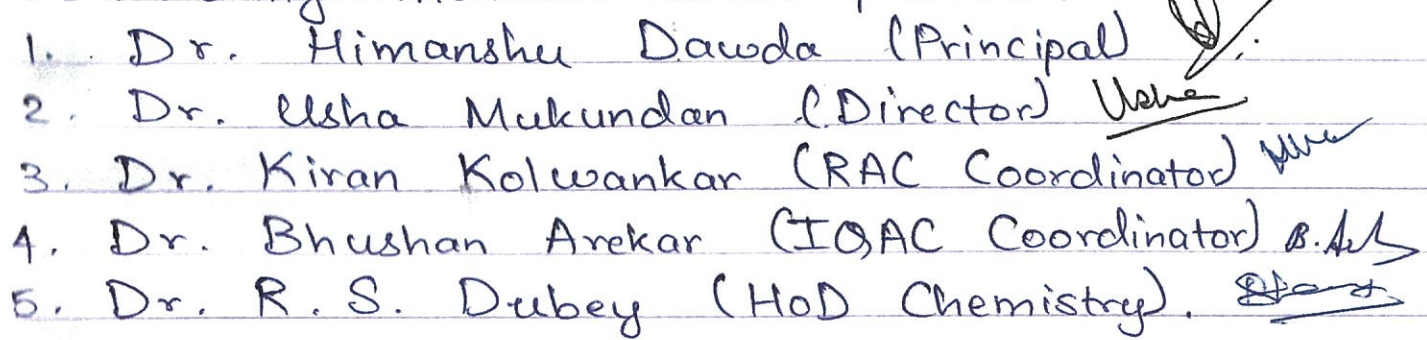 1. Dr. Himanshu Dawda (Principal)
2. Dr. Usha Mukundan (Director) Usha
3. Dr. Kiran Kolwankar (RAC Coordinator)
4. Dr. Bhushan Arekar (IQAC Coordinator)
5. Dr. R. S. Dubey (HoD Chemistry).